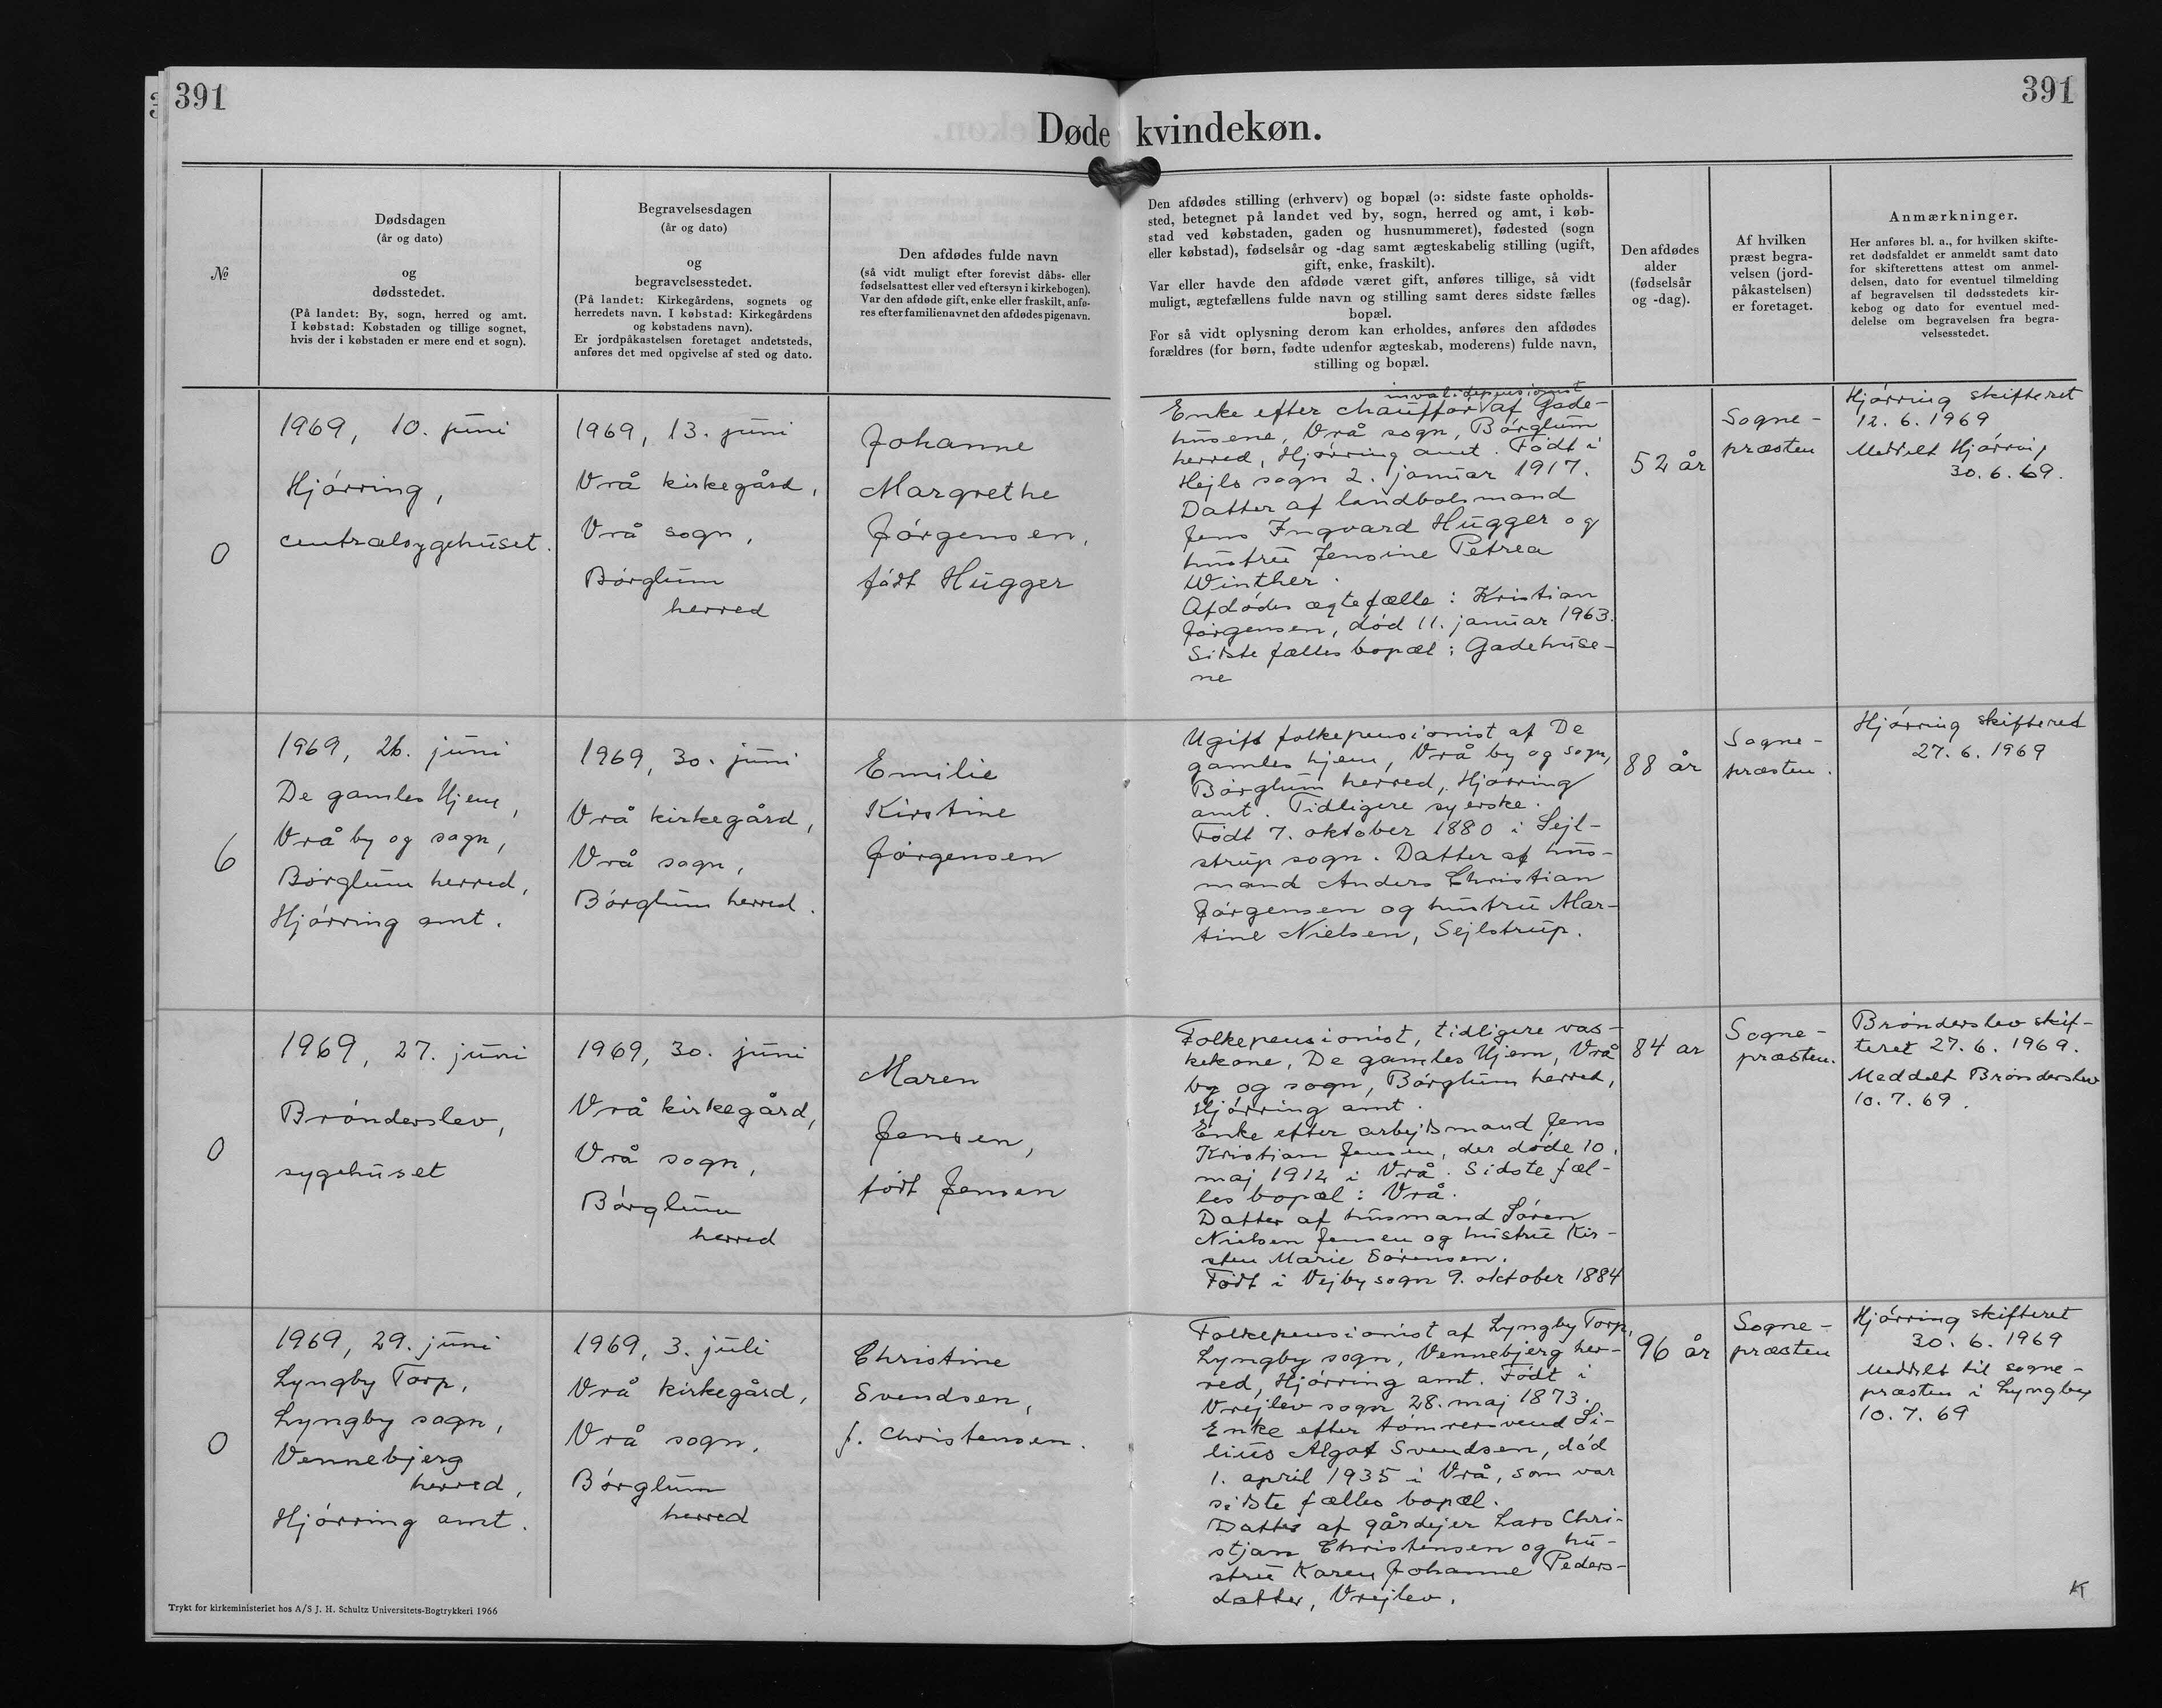 391
391
Døde kvindekøn.
№
Dødsdagen
(år og dato)
og
dødsstedet.
(På landet: By, sogn, herred og amt.
I købstad: Købstaden og tillige sognet,
hvis der i købstaden er mere end et sogn).
Begravelsesdagen
(år og dato)
og
begravelsesstedet.
(På landet: Kirkegårdens, sognets og
herredets navn. I købstad: Kirkegårdens
og købstadens navn).
Er jordpåkastelsen foretaget andetsteds,
anføres det med opgivelse af sted og dato.
Den afdødes fulde navn
(så vidt muligt efter forevist dåbs- eller
fødselsattest eller ved eftersyn i kirkebogen).
Var den afdøde gift, enke eller fraskilt, anfø-
res efter familienavnet den afdødes pigenavn.
Den afdødes stilling (erhverv) og bopæl (ɔ: sidste faste opholds-
sted, betegnet på landet ved by, sogn, herred og amt, i køb-
stad ved købstaden, gaden og husnummeret), fødested (sogn
eller købstad), fødselsår og -dag samt ægteskabelig stilling (ugift,
gift, enke, fraskilt).
Var eller havde den afdøde været gift, anføres tillige, så vidt
muligt, ægtefællens fulde navn og stilling samt deres sidste fælles
bopæl.
For så vidt oplysning derom kan erholdes, anføres den afdødes
forældres (for børn, fødte udenfor ægteskab, moderens) fulde navn,
stilling og bopæl.
Den afdødes
alder
(fødselsår
og -dag).
Af hvilken
præst begra-
velsen (jord-
påkastelsen)
er foretaget.
Anmærkninger.
Her anføres bl. a., for hvilken skifte-
ret dødsfaldet er anmeldt samt dato
for skifterettens attest om anmel-
delsen, dato for eventuel tilmelding
af begravelsen til dødsstedets kir-
kebog og dato for eventuel med-
delelse om begravelsen fra begra-
velsesstedet.
0
1969, 10. juni
Hjørring,
centralsygehuset.
1969, 13. juni
Vrå kirkegård,
Vrå sogn,
Børglum
herred
Johanne
Margrethe
Jørgensen,
født Hugger
invalidepensionist
Enke efter chauffør af Gade-
husene, Vrå sogn, Børglum
herred, Hjørring amt. Født i
Hejls sogn 2. januar 1917.
Datter af landbolsmand
Jens Ingvard Hugger og
hustru Jensine Petrea
Winther.
Afdødes ægtefælle: Kristian
Jørgensen, død 11. januar 1963.
Sidste fælles bopæl: Gadehuse-
ne
52 år
Sogne-
præsten
Hjørring skifteret
12. 6. 1969
Meddelt Hjørring
30. 6. 69.
6
1969, 26. juni
De gamles Hjem,
Vrå by og sogn,
Børglum herred,
Hjørring amt.
1969, 30. juni
Vrå kirkegård,
Vrå sogn,
Børglum herred.
Emilie
Kirstine
Jørgensen
Ugift folkepensionist af De
gamles hjem, Vrå by og sogn,
Børglum herred, Hjørring
amt. Tidligere syerske.
Født 7. oktober 1880 i Sejl-
strup sogn. Datter af hus-
mand Anders Christian
Jørgensen og hustru Mar-
tine Nielsen, Sejlstrup.
88 år
Sogne-
præsten.
Hjørring skifteret
27. 6. 1969
0
1969, 27. juni
Brønderslev,
sygehuset
1969, 30. juni
Vrå kirkegård,
Vrå sogn,
Børglum
herred
Maren
Jensen,
født Jensen
Folkepensionist, tidligere vas-
kekone, De gamles Hjem, Vrå
by og sogn, Børglum herred,
Hjørring amt.
Enke efter arbejdsmand Jens
Kristian Jensen, der døde 10.
maj 1914 i Vrå. Sidste fæl-
les bopæl: Vrå.
Datter af husmand Søren
Nielsen Jensen og hustru Kir-
sten Marie Sørensen.
Født i Vejby sogn 9. oktober 1884
84 ar
Sogne-
præsten.
Brønderslev skif-
teret 27. 6. 1969.
Meddelt Brønderslev
10. 7. 69.
0
1969, 29. juni
Lyngby Torp,
Lyngby sogn,
Vennebjerg
herred,
Hjørring amt.
1969, 3. juli
Vrå kirkegård,
Vrå sogn.
Børglum
herred
Christine
Svendsen,
f. Christensen.
Folkepensionist af Lyngby Torp,
Lyngby sogn, Vennebjerg her-
red, Hjørring amt. Født i
Vrejlev sogn 28. maj 1873.
Enke efter tømrersvend Si-
lius Algot Svendsen, død
1. april 1935 i Vrå, som var
sidste fælles bopæl.
Datter af gårdejer Lars Chri-
stjan Christensen og hu-
stru Karen Johanne Peders-
datter, Vrejlev.
96 år
Sogne-
præsten
Hjørring skifteret
30. 6. 1969
Meddelt til sogne-
præsten i Lyngby
10. 7. 69
K
Trykt for kirkeministeriet hos A/S J. H. Schultz Universitets-Bogtrykkeri 1966